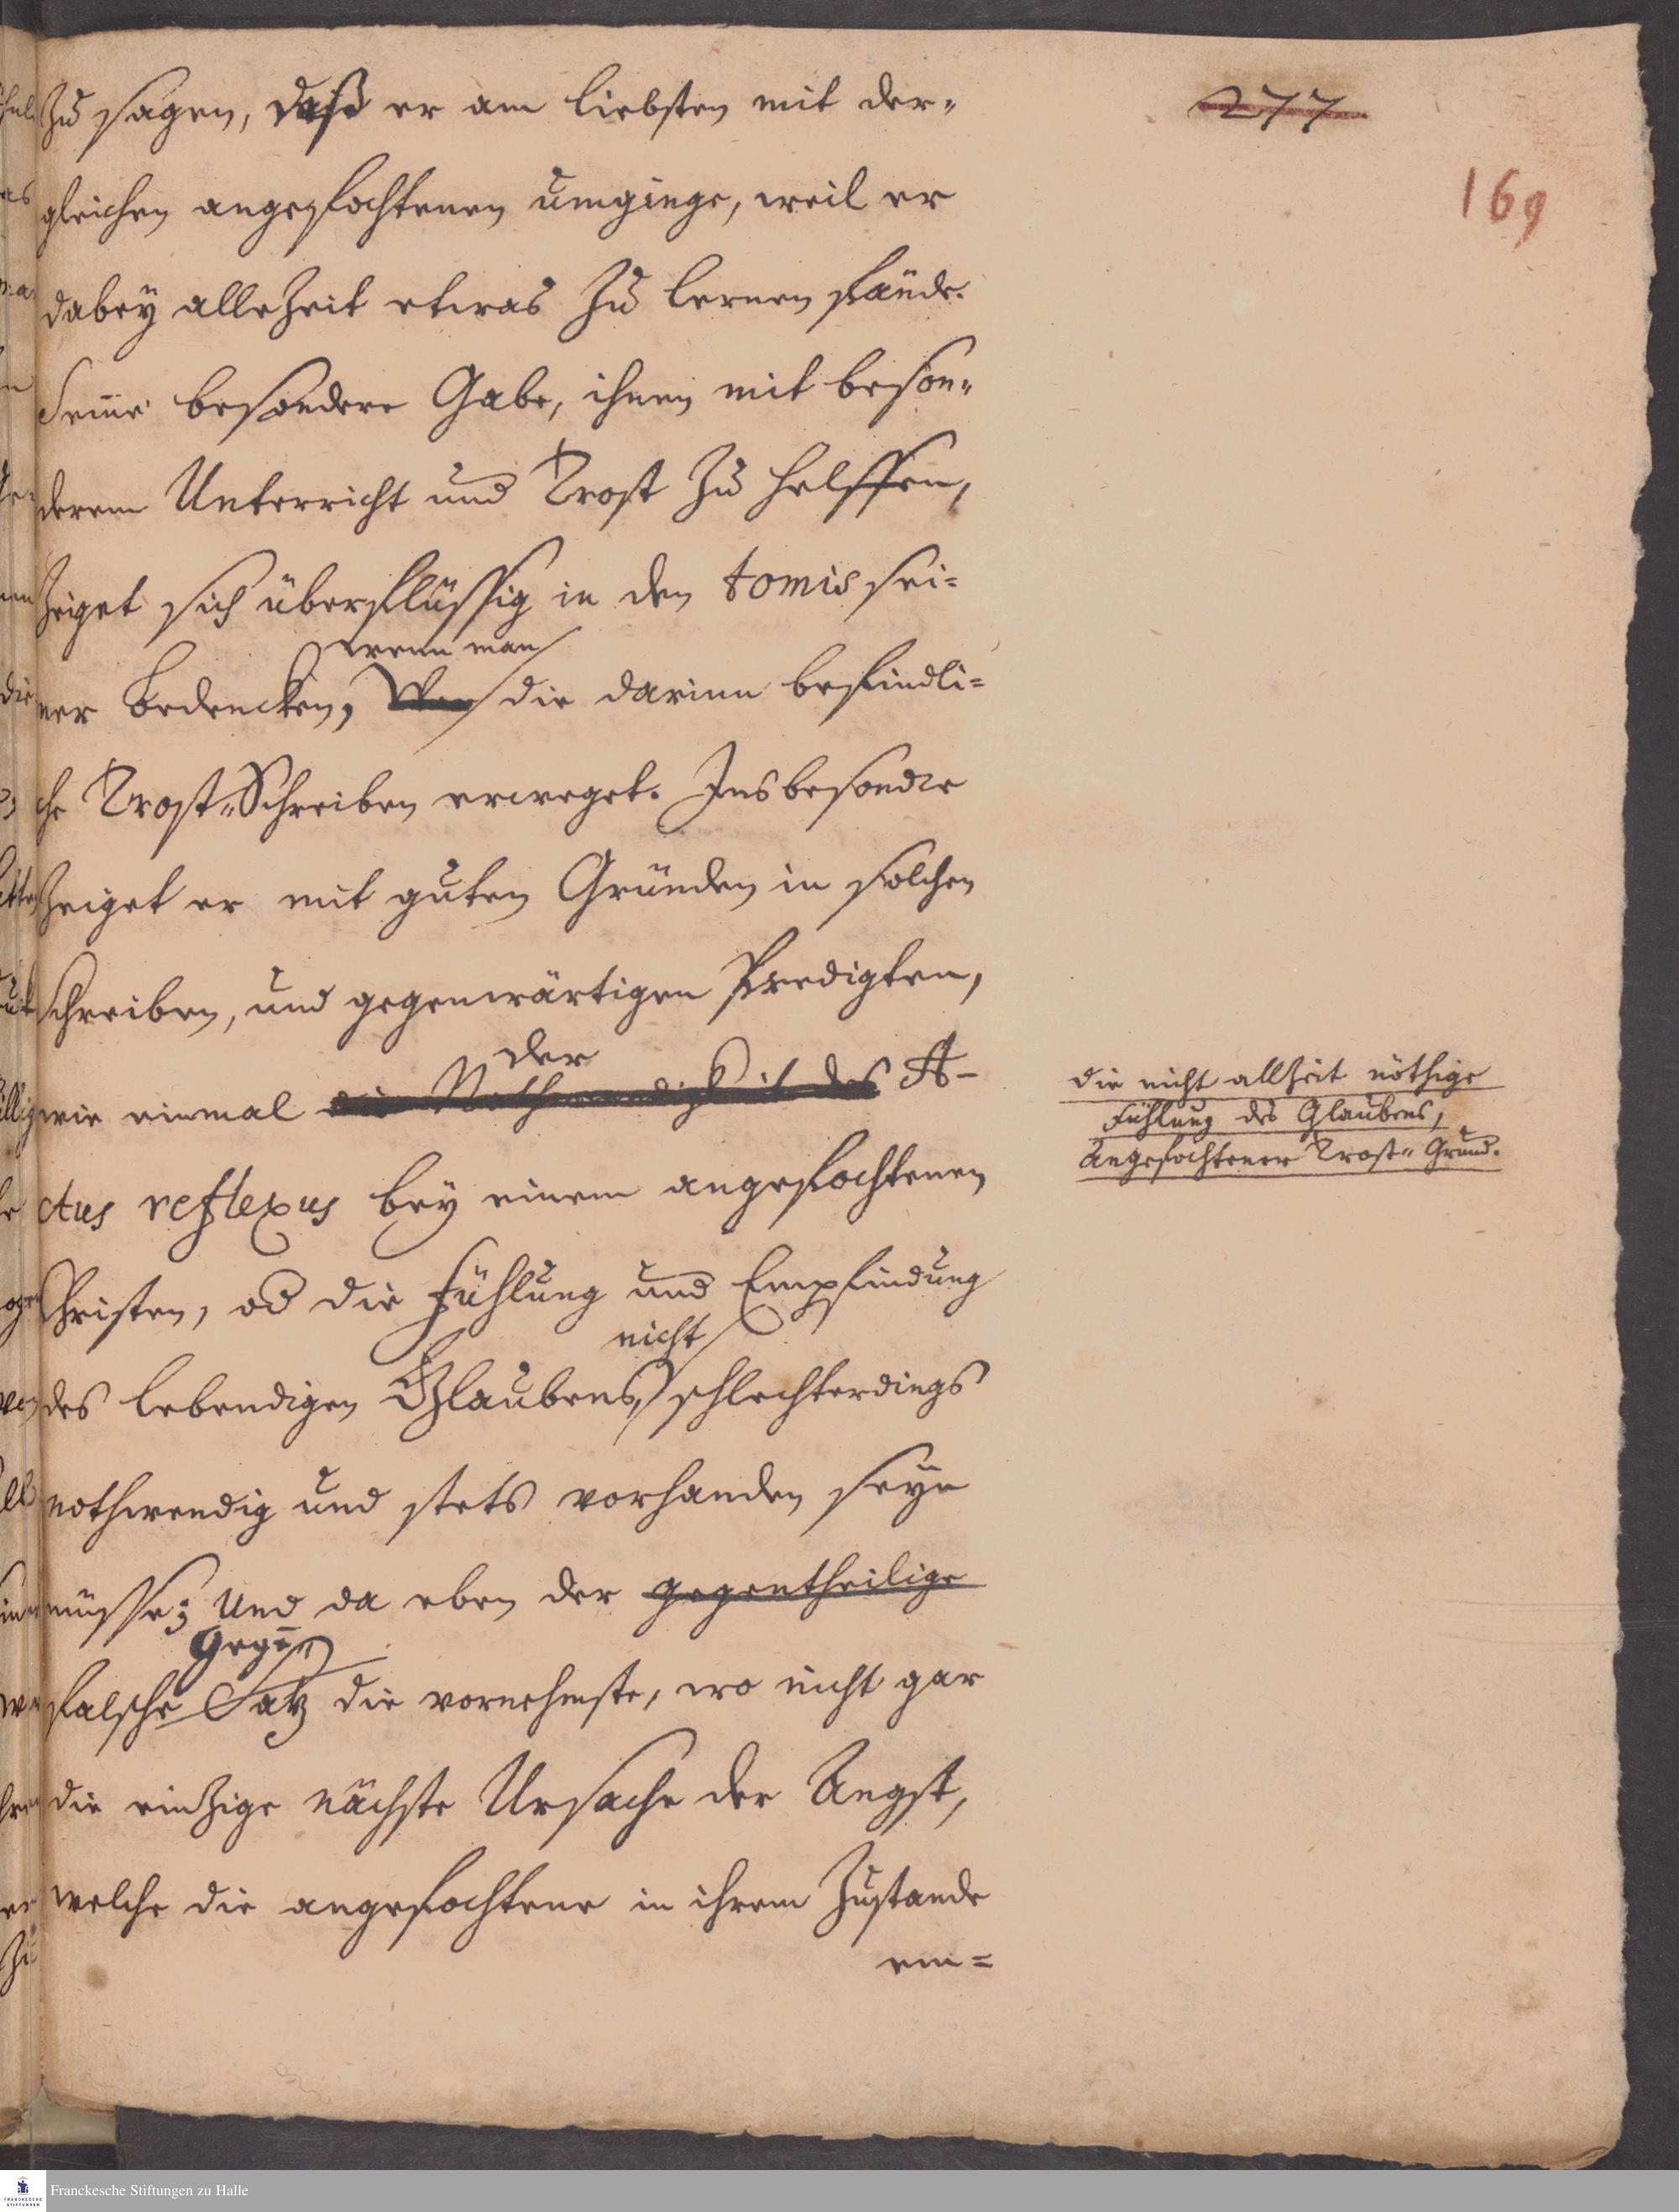 277
169
zu sagen, daß er am liebsten mit der=
gleichen angefochtenen umginge, weil er
dabey allezeit etwas zu lernen fände.
Seine besondere Gabe, ihnen mit beson=
derem Unterricht und Trost zu helffen,
zeiget sich überflüssig in den tomis sei=
wenn man
ner Bedencken, die darinn befindli=
che Trost=Schreiben erweget. Insbesondre
zeiget er mit guten Gründen in solchen
schreiben, und gegenwärtigen Predigten,
der
wie einmal die Nothwendigkeit des A-
ctus reflexus bey einem angefochtenen
Christen, od die Fühlung und Empfindung
nicht
des lebendigen Glaubens, schlechterdings
nothwendig und stets vorhanden seyn
müsse; Und da eben der gegentheilige
Gegen
falsche Satz die vornehmste, wo nicht gar
die eintzige nächste Ursache der Angst,
welche die angefochtene in ihrem Zustande
em=
die nicht allzeit nöthige
Fühlung des Glaubens,
Angefochtener Trost=Grund.
Franckesche Stiftungen zu Halle